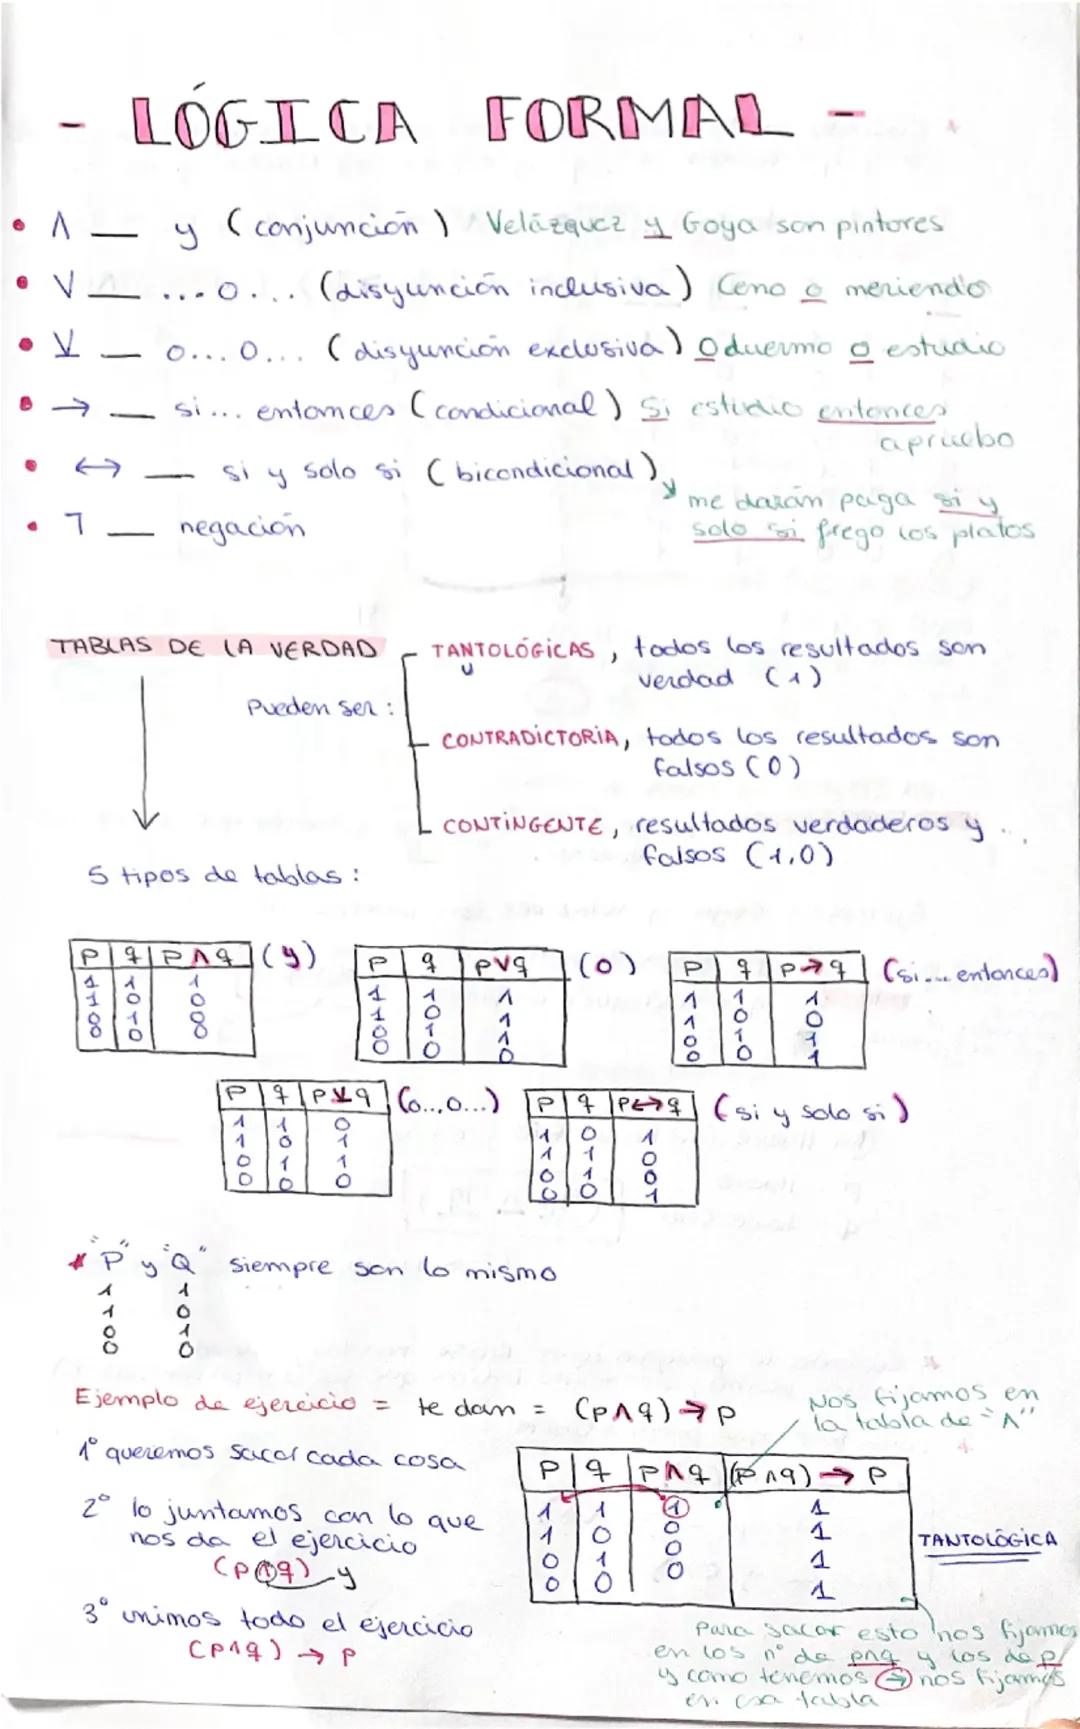 - LÓGICA FORMAL -
• ∧ — y (conjunción) Velázquez y Goya son pintores
• ∨ — ...o... (disyunción inclusiva) Ceno o meriendo
• ⊻ — o...o... (disyunción exclusiva) O duermo o estudio
• → — si... entonces (condicional) Si estudio entonces
apruebo
• ↔ — si y solo si (bicondicional)
me darán paga si y
solo si friego los platos
• ¬ — negación
TABLAS DE LA VERDAD
Pueden ser:
TANTOLÓGICAS, todos los resultados son
u
verdad (1)
CONTRADICTORIA, todos los resultados son
falsos (0)
CONTINGENTE, resultados verdaderos y
falsos (1,0)
5 tipos de tablas:
p q p∧q (y)
1 1 1
1 0 0
0 1 0
0 0 0
p q p∨q (o)
1 1 1
1 0 1
0 1 1
0 0 0
p q p→q (si... entonces)
1 1 1
1 0 0
0 1 1
0 0 1
p q p⊻q (o...o...)
1 1 0
1 0 1
0 1 1
0 0 0
p q p↔q (si y solo si)
1 0 1
1 1 0
0 1 0
0 0 1
* "P" y "Q" siempre son lo mismo
1 1
1 0
0 1
0 0
Ejemplo de ejercicio = te dan = (p∧q) → p
Nos fijamos en
la tabla de "∧"
1º queremos sacar cada cosa
2º lo juntamos con lo que
nos da el ejercicio
(p∧q) y
3º unimos todo el ejercicio
(p∧q) → p
p q p∧q (p∧q) → p
1 1 1 1
1 0 0 1
0 1 0 1
0 0 0 1
TANTOLÓGICA
Para sacar esto nos fijamos
en los nº de p∧q y los de p
y como tenemos → nos fijamos
en esa tabla